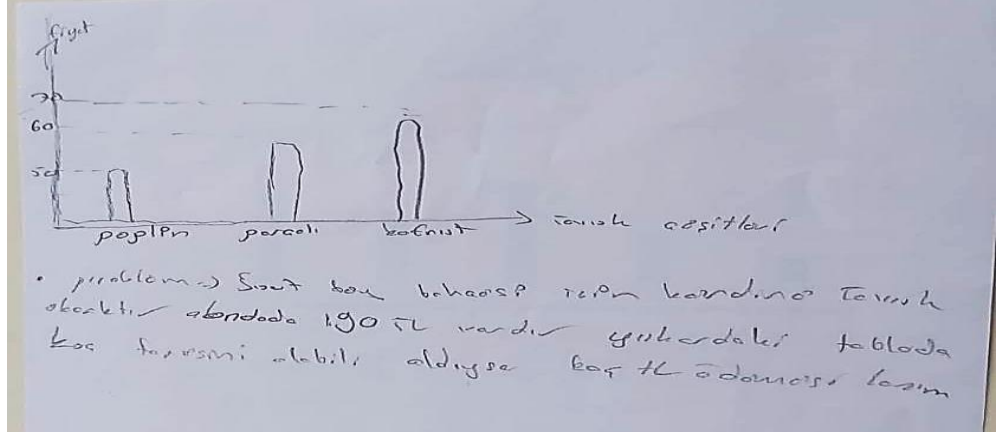 fiyat
70
60
50
poplin
pazcali
kofnist
Tavuk çeşitleri
• piroblem → Suat bey bahçesi için kendine Tavuk
alacaktır elinde 190 TL vardır yukardaki tabloda
kaç alabilir aldıysa kaç tL ödemesi lazım